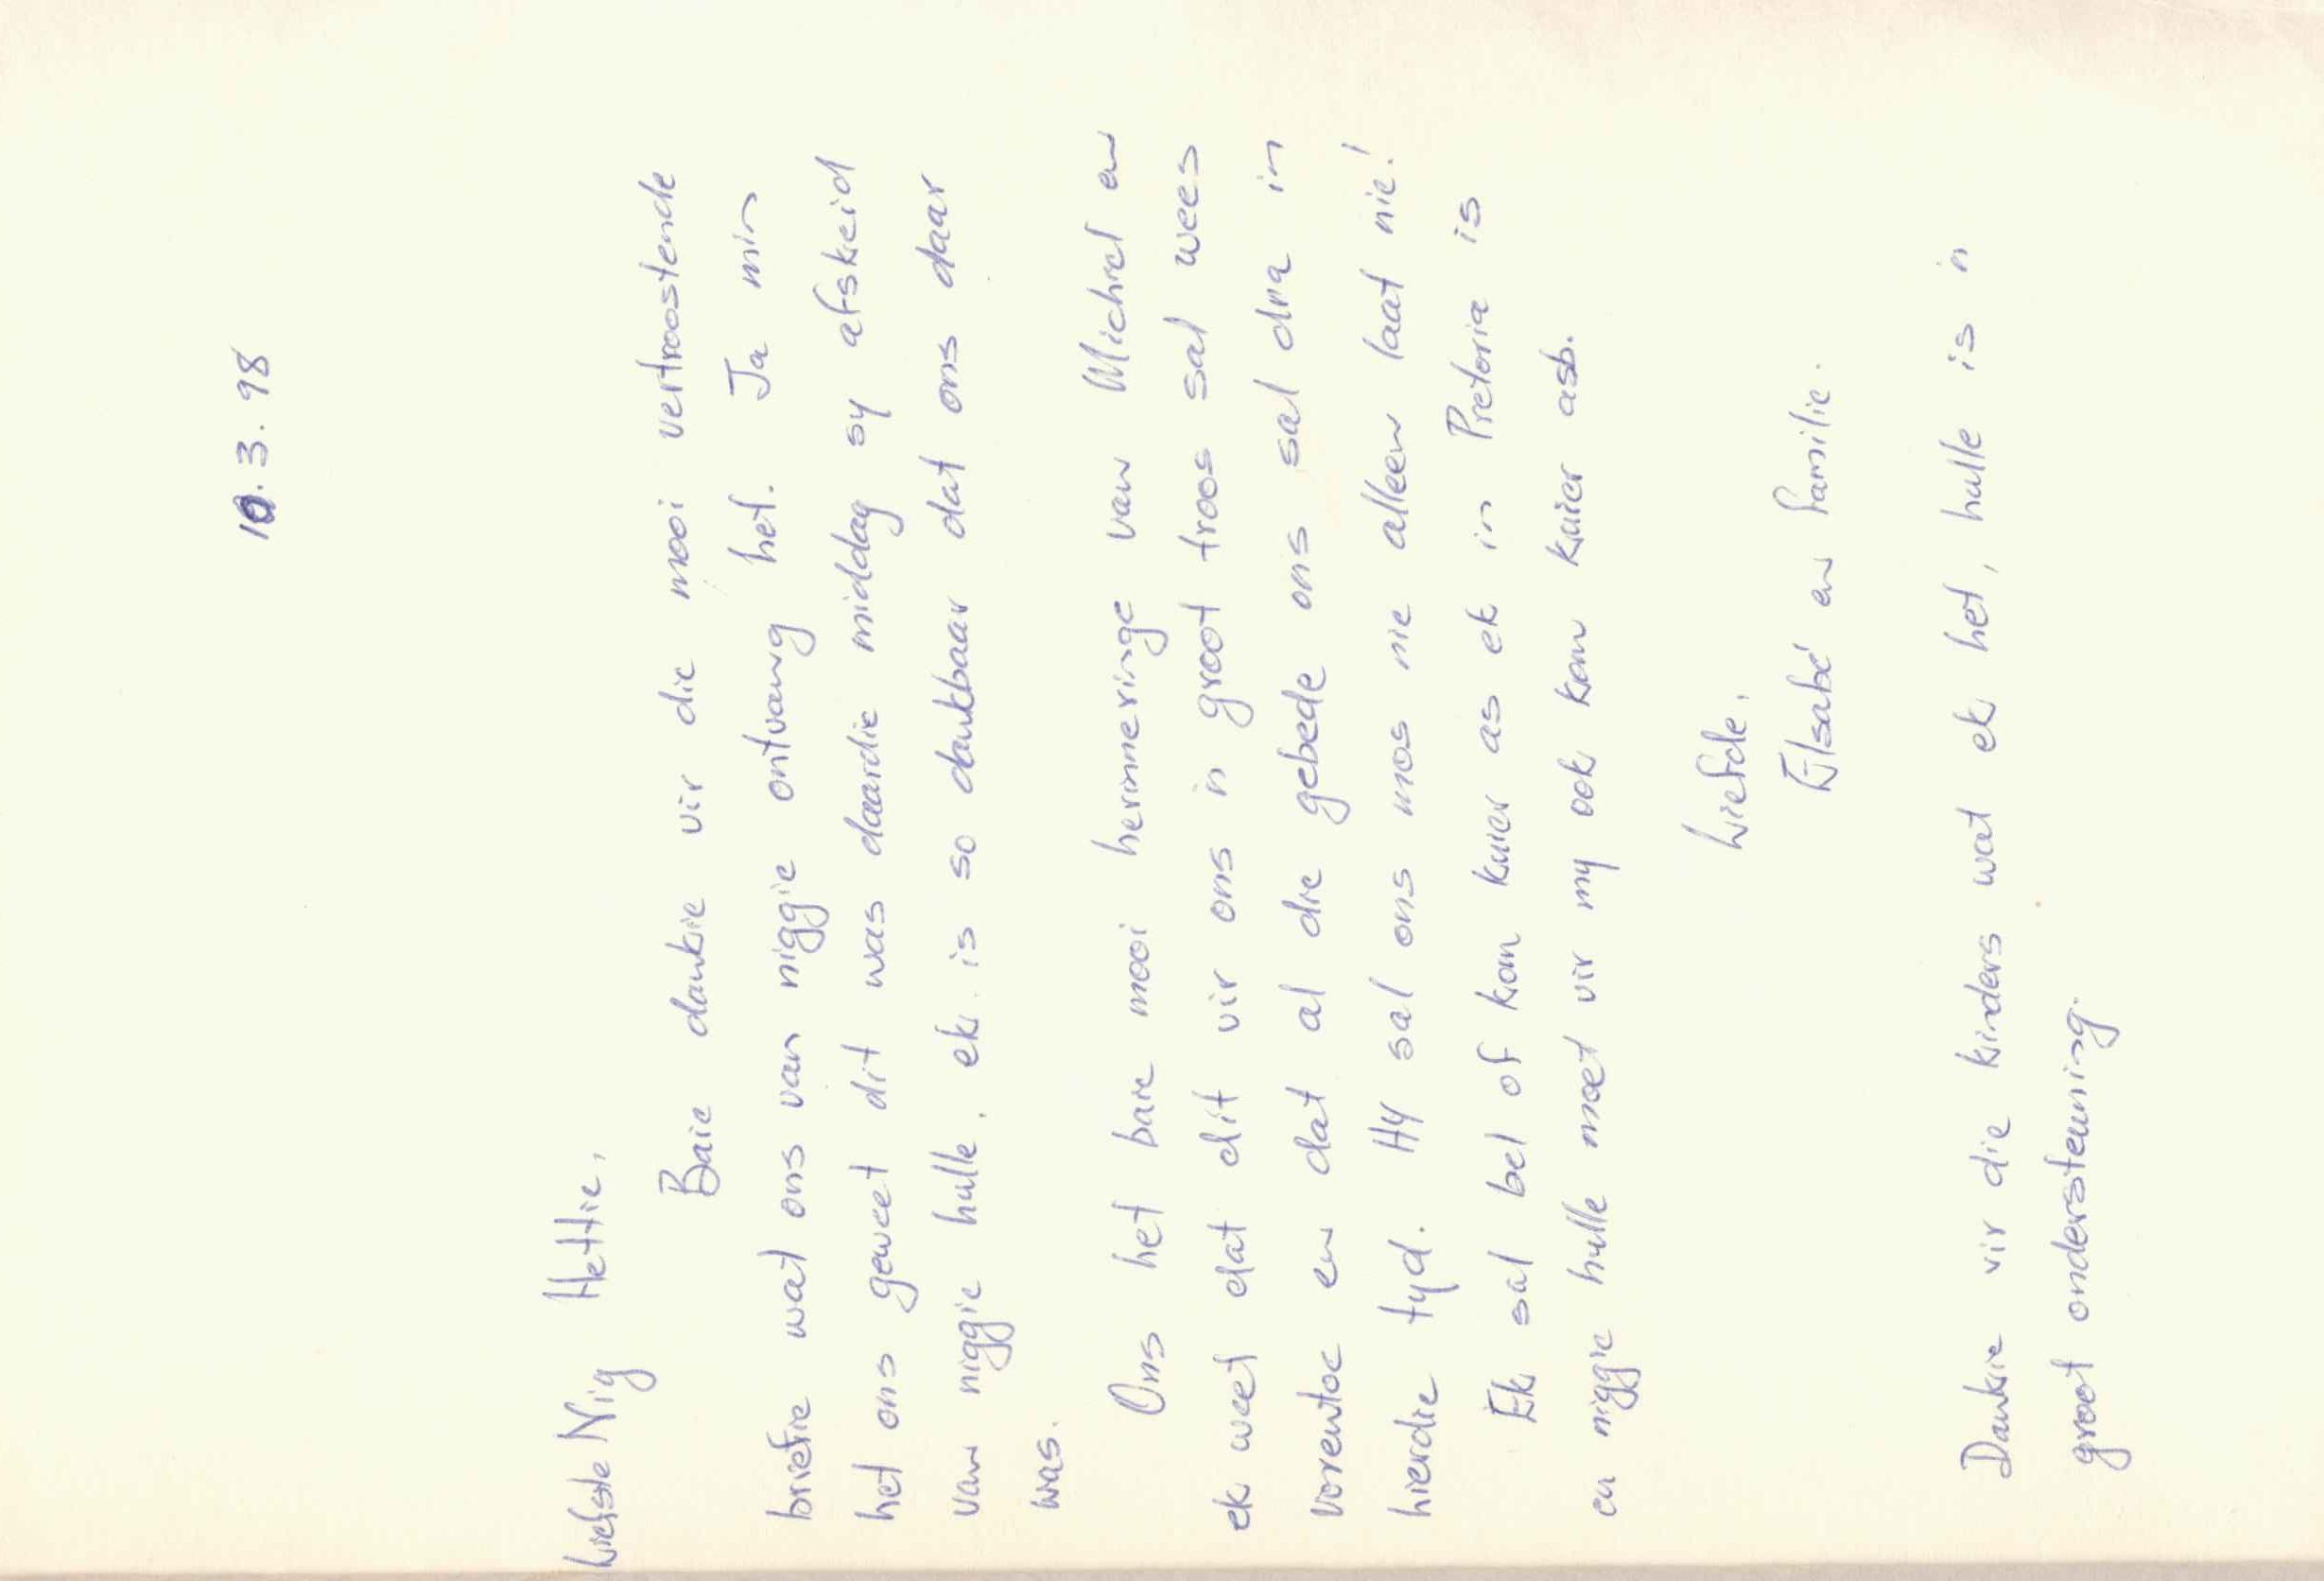 10.3.98
Liefste Nig Hettie,
Baie dankie vir die mooi vertroostende
briefie wat ons van niggie ontvang het. Ja min
het ons geweet dit was daardie middag sy afskeid
van niggie hulle, ek is so dankbaar dat ons daar
was.
Ons het baie mooi herinneringe van Michiel en
ek weet dat dit vir ons 'n groot troos sal wees
vorentoe en dat al die gebede ons sal dra in
hierdie tyd. Hy sal ons mos nie alleen laat nie!
Ek sal bel of kom kuier as ek in Pretoria is
en niggie hulle moet vir my ook kom kuier asb.
Liefde,
Elsabé en familie.
Dankie vir die kinders wat ek het, hulle is 'n
groot ondersteuning.